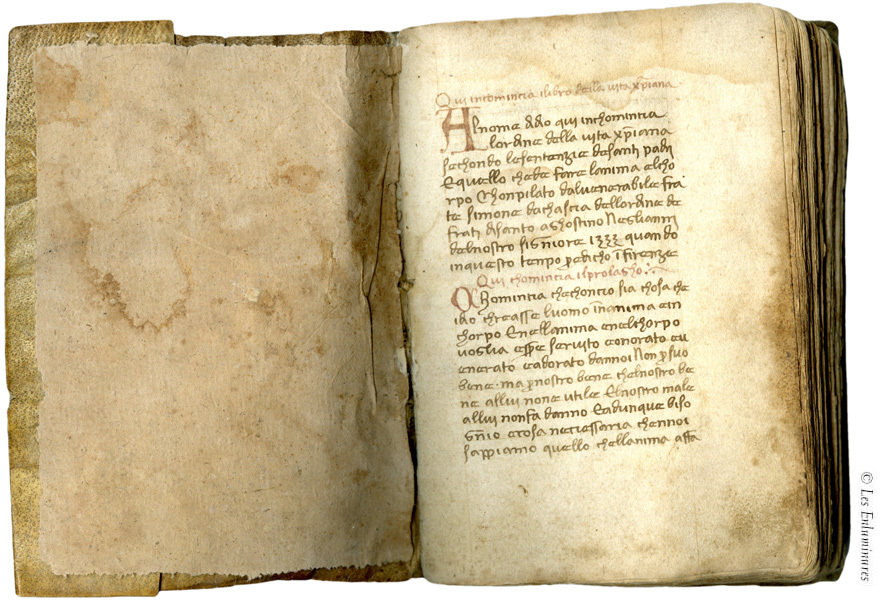 Qui incomincia ilibro della vita xp̄iana
Al nome didio qui inchomincia
lordine della vita xp̄iana
sechondo lesentenzie desanti padri
Equello chede fare lanima elcho
rpo Chonpilato dalvenerabile fra
te Simone dachascia dellordine de
frati disanto aghostino Negliannj
delnostro signiore 1333 quando
inquesto tenpo predicho ī firenze
Qui chomincia ilprolagho
Chomincia chechoncio sia chosa che
idio chreasse luomo inanima e in
chorpo Enellanima enelchorpo
voglia essere servito e onorato e u
enerato e adorato dannoi Non p̱ suo
bene. ma p̱ nostro bene chelnostro be
ne allui none utile Elnostro male
allui nonfa danno Eadunque biso
gnio e cosa necessaria chennoi
sappiamo quello chellanima assa
© Les Enluminures